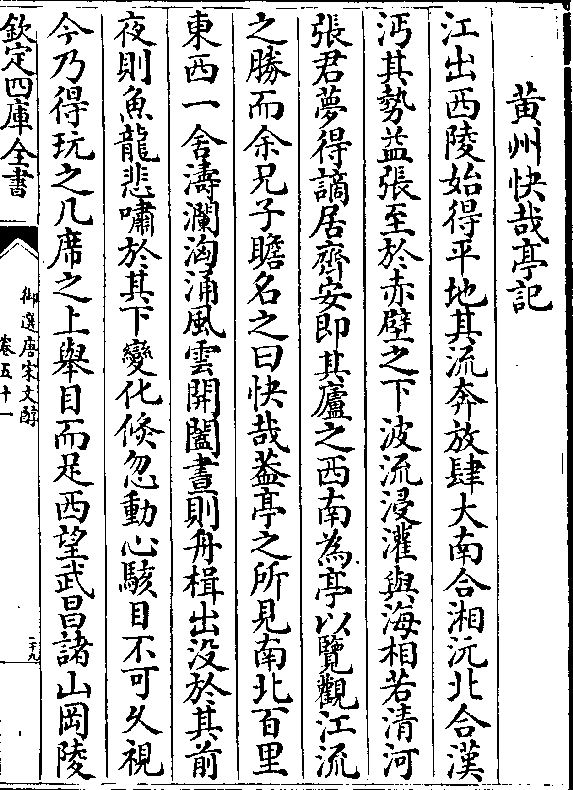 黄州快哉亭記
江出西陵始得平地其流奔放肆大南合湘沅北合漢
沔其勢益張至於赤壁之下波流浸灌與海相若清河
張君夢得謫居齊安即其廬之西南為亭以覽觀江流
之勝而余兄子瞻名之曰快哉葢亭之所見南北百里
東西一舍濤瀾洶涌風雲開闔晝則舟楫出沒於其前
夜則魚龍悲嘯於其下變化倐忽動心駭目不可久視
今乃得玩之几席之上舉目而足西望武昌諸山岡陵
欽定四庫全書
御選唐宋文醇
卷五十一
二十九